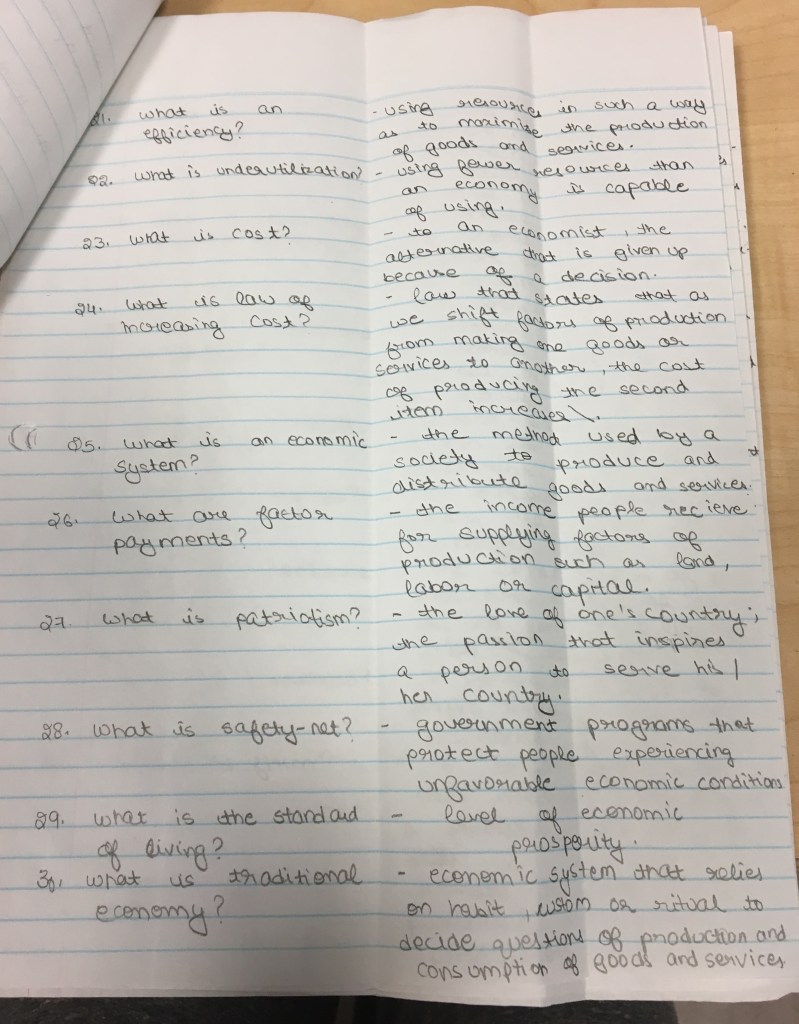 21. what is an
efficiency?
- using resources in such a way
as to maximize the production
of goods and services.
22. what is underutilization?
- using fewer resources than
an economy is capable
of using.
23. what is cost?
- to an economist, the
alternative that is given up
because of a decision.
24. what is law of
increasing cost?
- law that states that as
we shift factors of production
from making one goods or
services to another, the cost
of producing the second
item increases\.
25. what is an economic
system?
- the method used by a
society to produce and
distribute goods and services.
26. what are factor
payments?
- the income people recieve
for supplying factors of
production such as land,
labor or capital.
27. what is patriotism?
- the love of one's country;
the passion that inspires
a person to serve his /
her country.
28. what is safety-net?
- government programs that
protect people experiencing
unfavorable economic conditions
29. what is the standard
of living?
- level of economic
prosperity.
30. what is traditional
economy?
- economic system that relies
on habit, custom or ritual to
decide questions of production and
consumption of goods and services